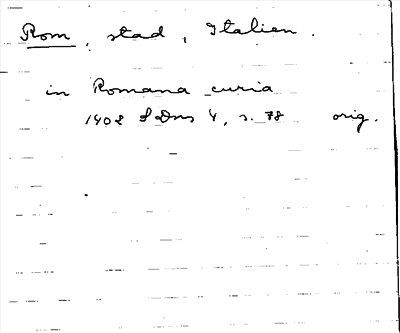 Rom, stad, Italien.
in Romana curia
1402 SDns 1, s. 78 orig.